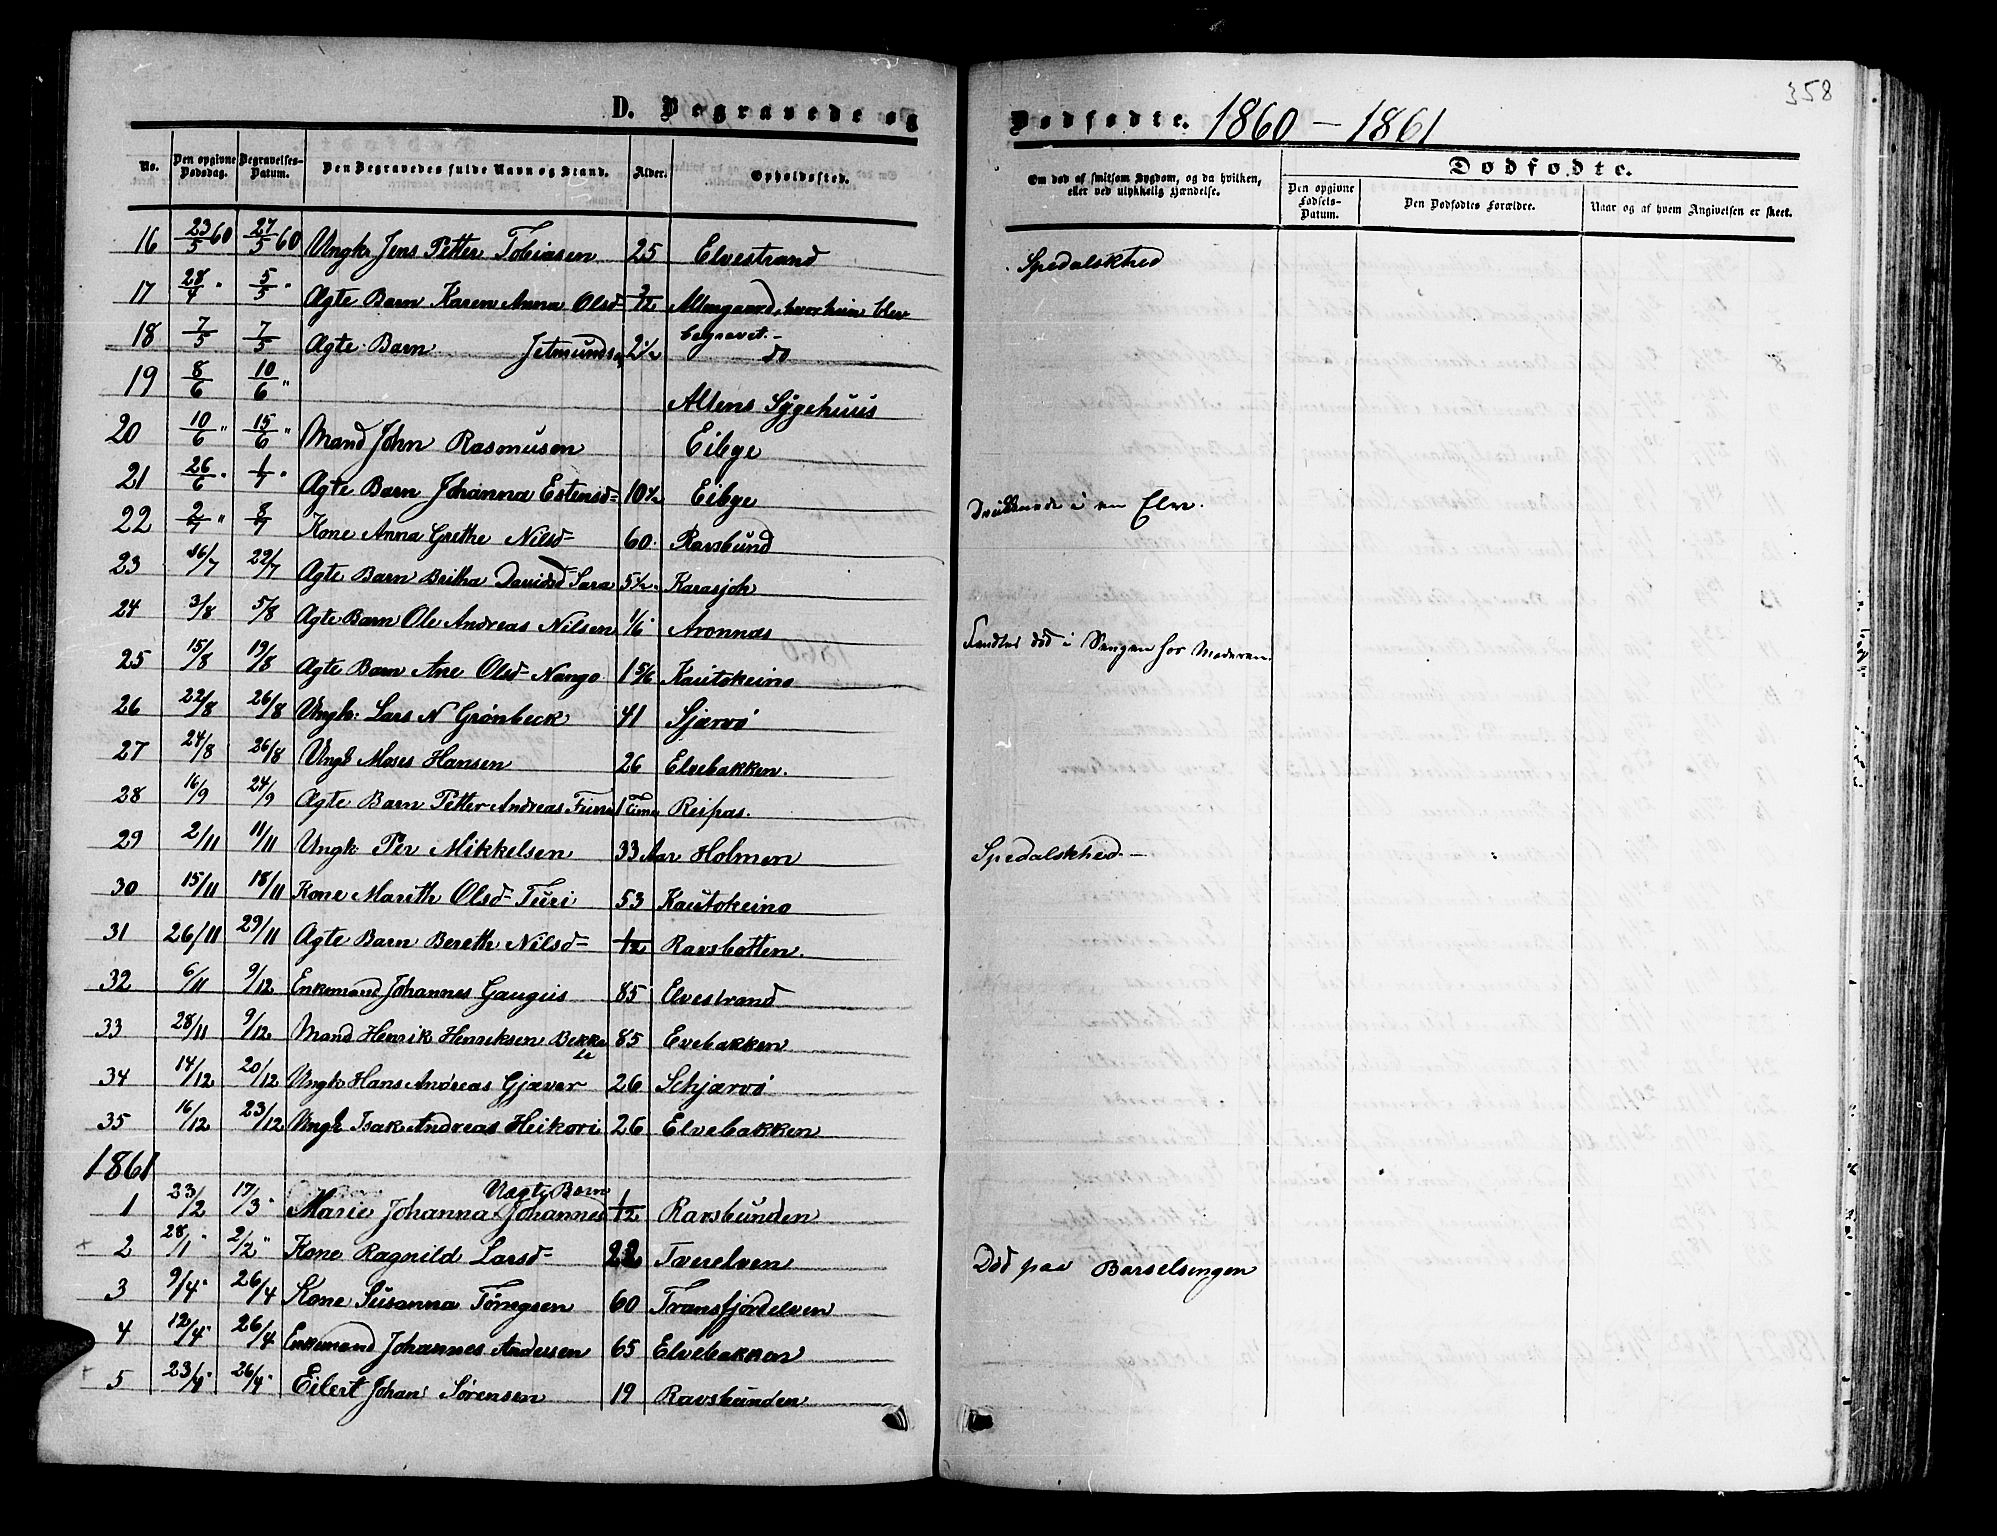 358
D. Begravede og Dødfødte. 1860 – 1861
No. Den opgivne Dødsdag. Begravelses-Datum. Den Begravedes fulde Navn og Stand. Alder. Opholdssted. Om død af smitsom Sygdom, og da hvilken, eller ved ulykkelig Hændelse. Dødfødte.
Den opgivne Fødsels-Datum. Den Dødfødtes Forældre. Naar og af hvem Angivelsen er skeet.
16 23/5 60 27/5 60 Ungk. Jens Petter Tobiasen 25 Elvestrand Spedalskhed
17 28/4 " 5/5 " Ægte Barn Karen Anna Olsd= Altengaard, hvor hun blev begravet.-
18 7/5 7/5 Ægte Barn Jetmundsen 2½ do
19 8/6 10/6 " Altens Sygehuus
20 10/6 " 15/6 " Mand John Rasmusen Eibye
21 26/6 " 1/7 " Ægte Barn Johanna Estensd= 10½ Eibye Druknede i en Elv.
22 2/7 " 8/7 Kone Anna Grethe Nilsd= 60 Ravsbund
23 16/7 22/7 Ægte Barn Britha Davidsd= Sara 5½ Karasjok
24 3/8 5/8 Ægte Barn Ole Andreas Nilsen 1/6 Aronnæs Fandtes død i Sengen hos Moderen.
25 15/8 19/8 Ægte Barn Ane Olsd= Nango 1 5/6 Kautokeino
26 22/8 26/8 Ungk: Lars N Grønbeck 41 Sjærvø
27 24/8 26/8 Ungk Moses Hansen 26 Elvebakken.
28 16/9 24/9 Ægte Barn Petter Andreas 1 Time Reipas.
29 2/11 11/11 Ungk Per Mikkelsen 33 Aar Holmen Spedalskhed.-
30 15/11 18/11 Kone Marith Olsd= Turi 53 Kautokeino
31 26/11 29/11 Ægte Barn Bereth Nilsd= 1/12 Ravsbotten.
32 6/11 9/12 Enkemand Johannes Gaugius 85 Elvestrand
33 28/11 9/12 Mand Henrik Henriksen 85 Evebakken
34 14/12 20/12 Ungk Hans Andreas Gjæver 26 Schjærvø
35 16/12 23/12 Ungk Isak Andreas Heikori 26 Elvebakken
1861
1 23/2 17/3 " Marie Johanna Johannes Uægte Barn 1/12 Ravsbunden
2 28/1 " 2/2 " Kone Ragnild Larsd= 22 Tverelven Død paa Barselsengen
3 9/4 " 26/4 Kone Susanna 60 Transfjordelven
4 12/4 " 26/4 Enkemand Johannes Andersen 65 Elvebakken
5 23/4 " 26/4 " Eilert Johan Sørensen 19 Ravsbunden